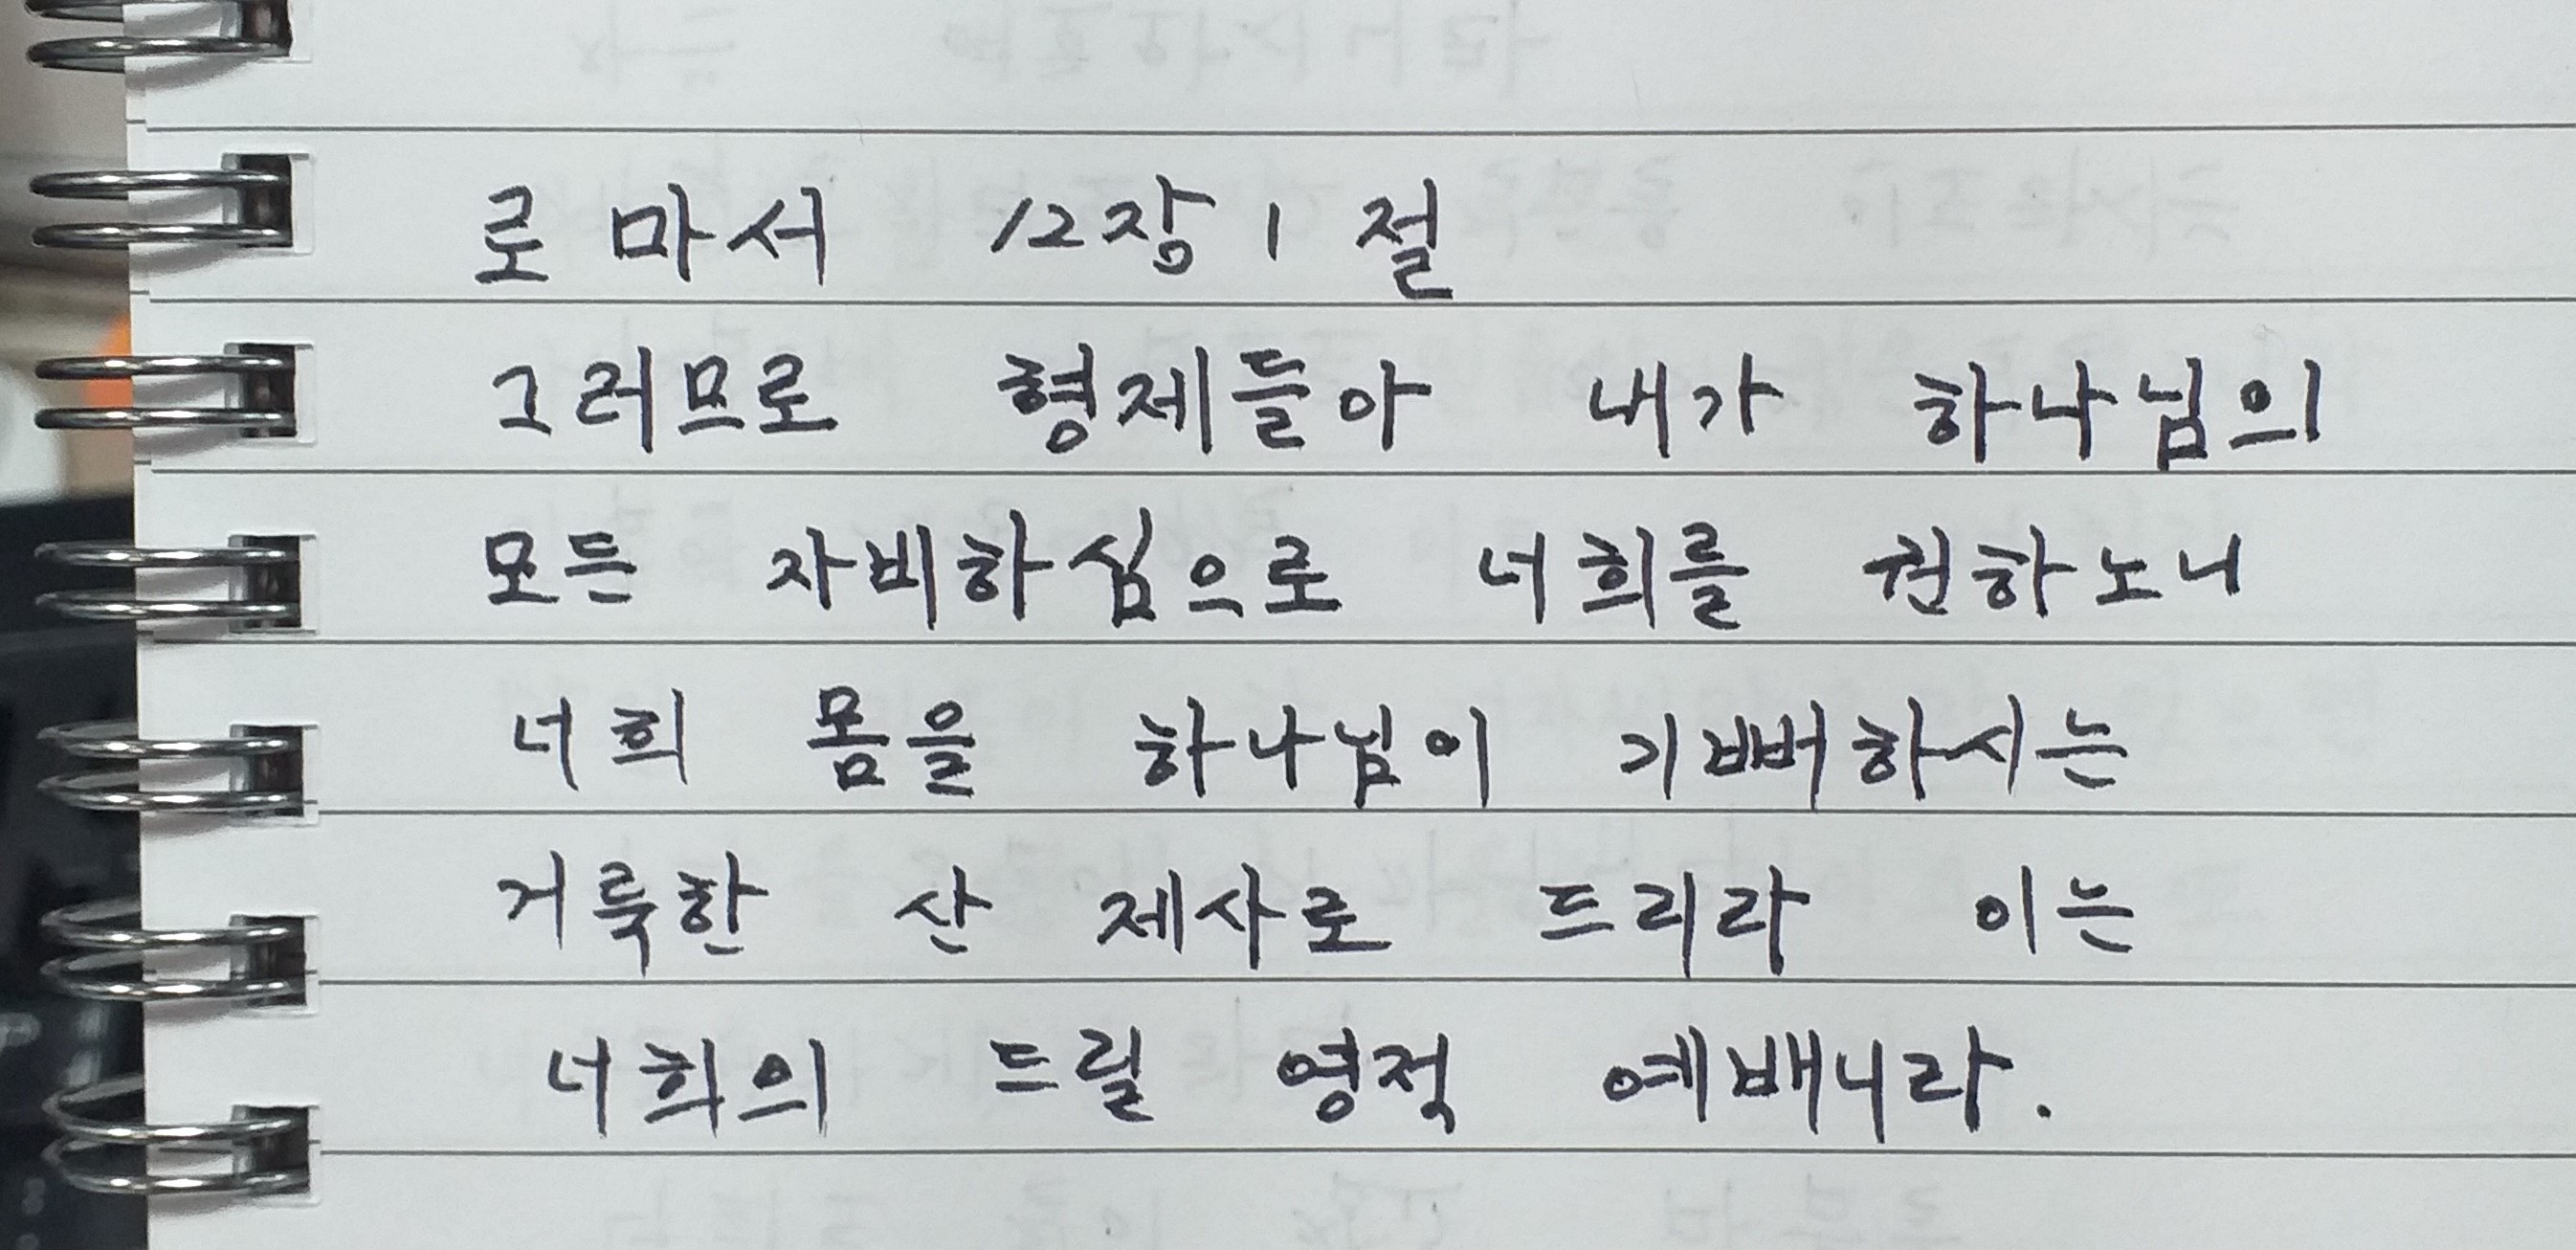 로마서 12장 1절
그러므로 형제들아 내가 하나님의
모든 자비하심으로 너희를 권하노니
너희 몸을 하나님이 기뻐하시는
거룩한 산 제사로 드리라 이는
너희의 드릴 영적 예배니라.